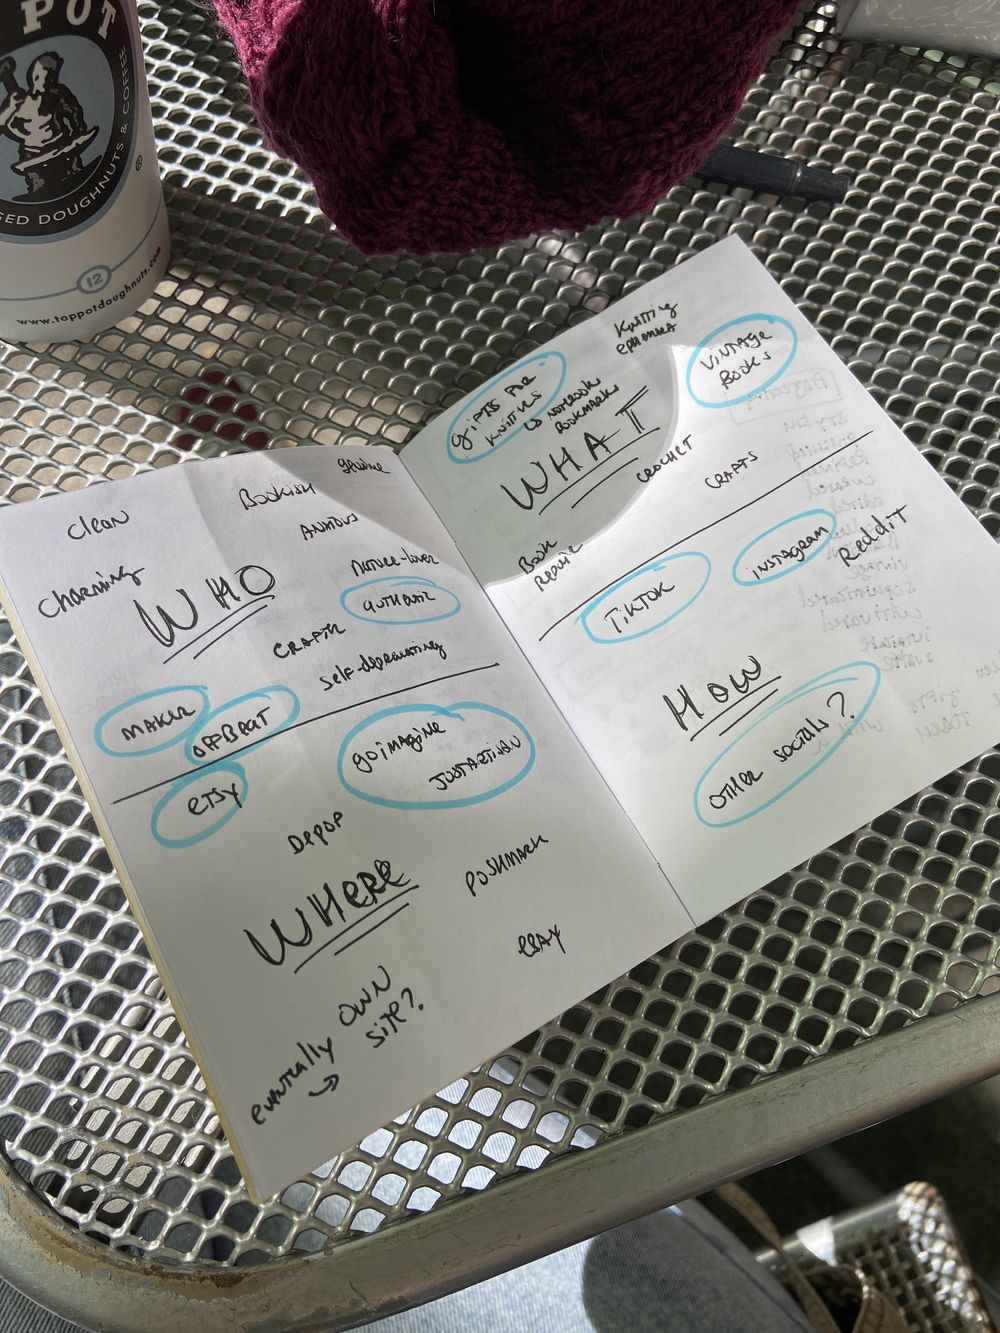 POT
GED DOUGHNUTS & COFFEE
®
12
www.toppotdoughnuts.com
clean
Bookish
genuine
ANXIOUS
charming
WHO
Nature-lover
authentic
CRAFTY
self-deprecating
MAKER
OFFBEAT
etsy
goimagine
JUSTARTISAN
DEPOP
WHERE
POSHMARK
eBAY
eventually OWN
site?
Knitting
ephemera
gifts for
knitters
↳ notebooks
Bookmarks
VINTAGE
BOOKS
WHAT
CROCHET
CRAFTS
Book
repair
TikTOK
INSTAGRAM
Reddit
HOW
OTHER SOCIALS?